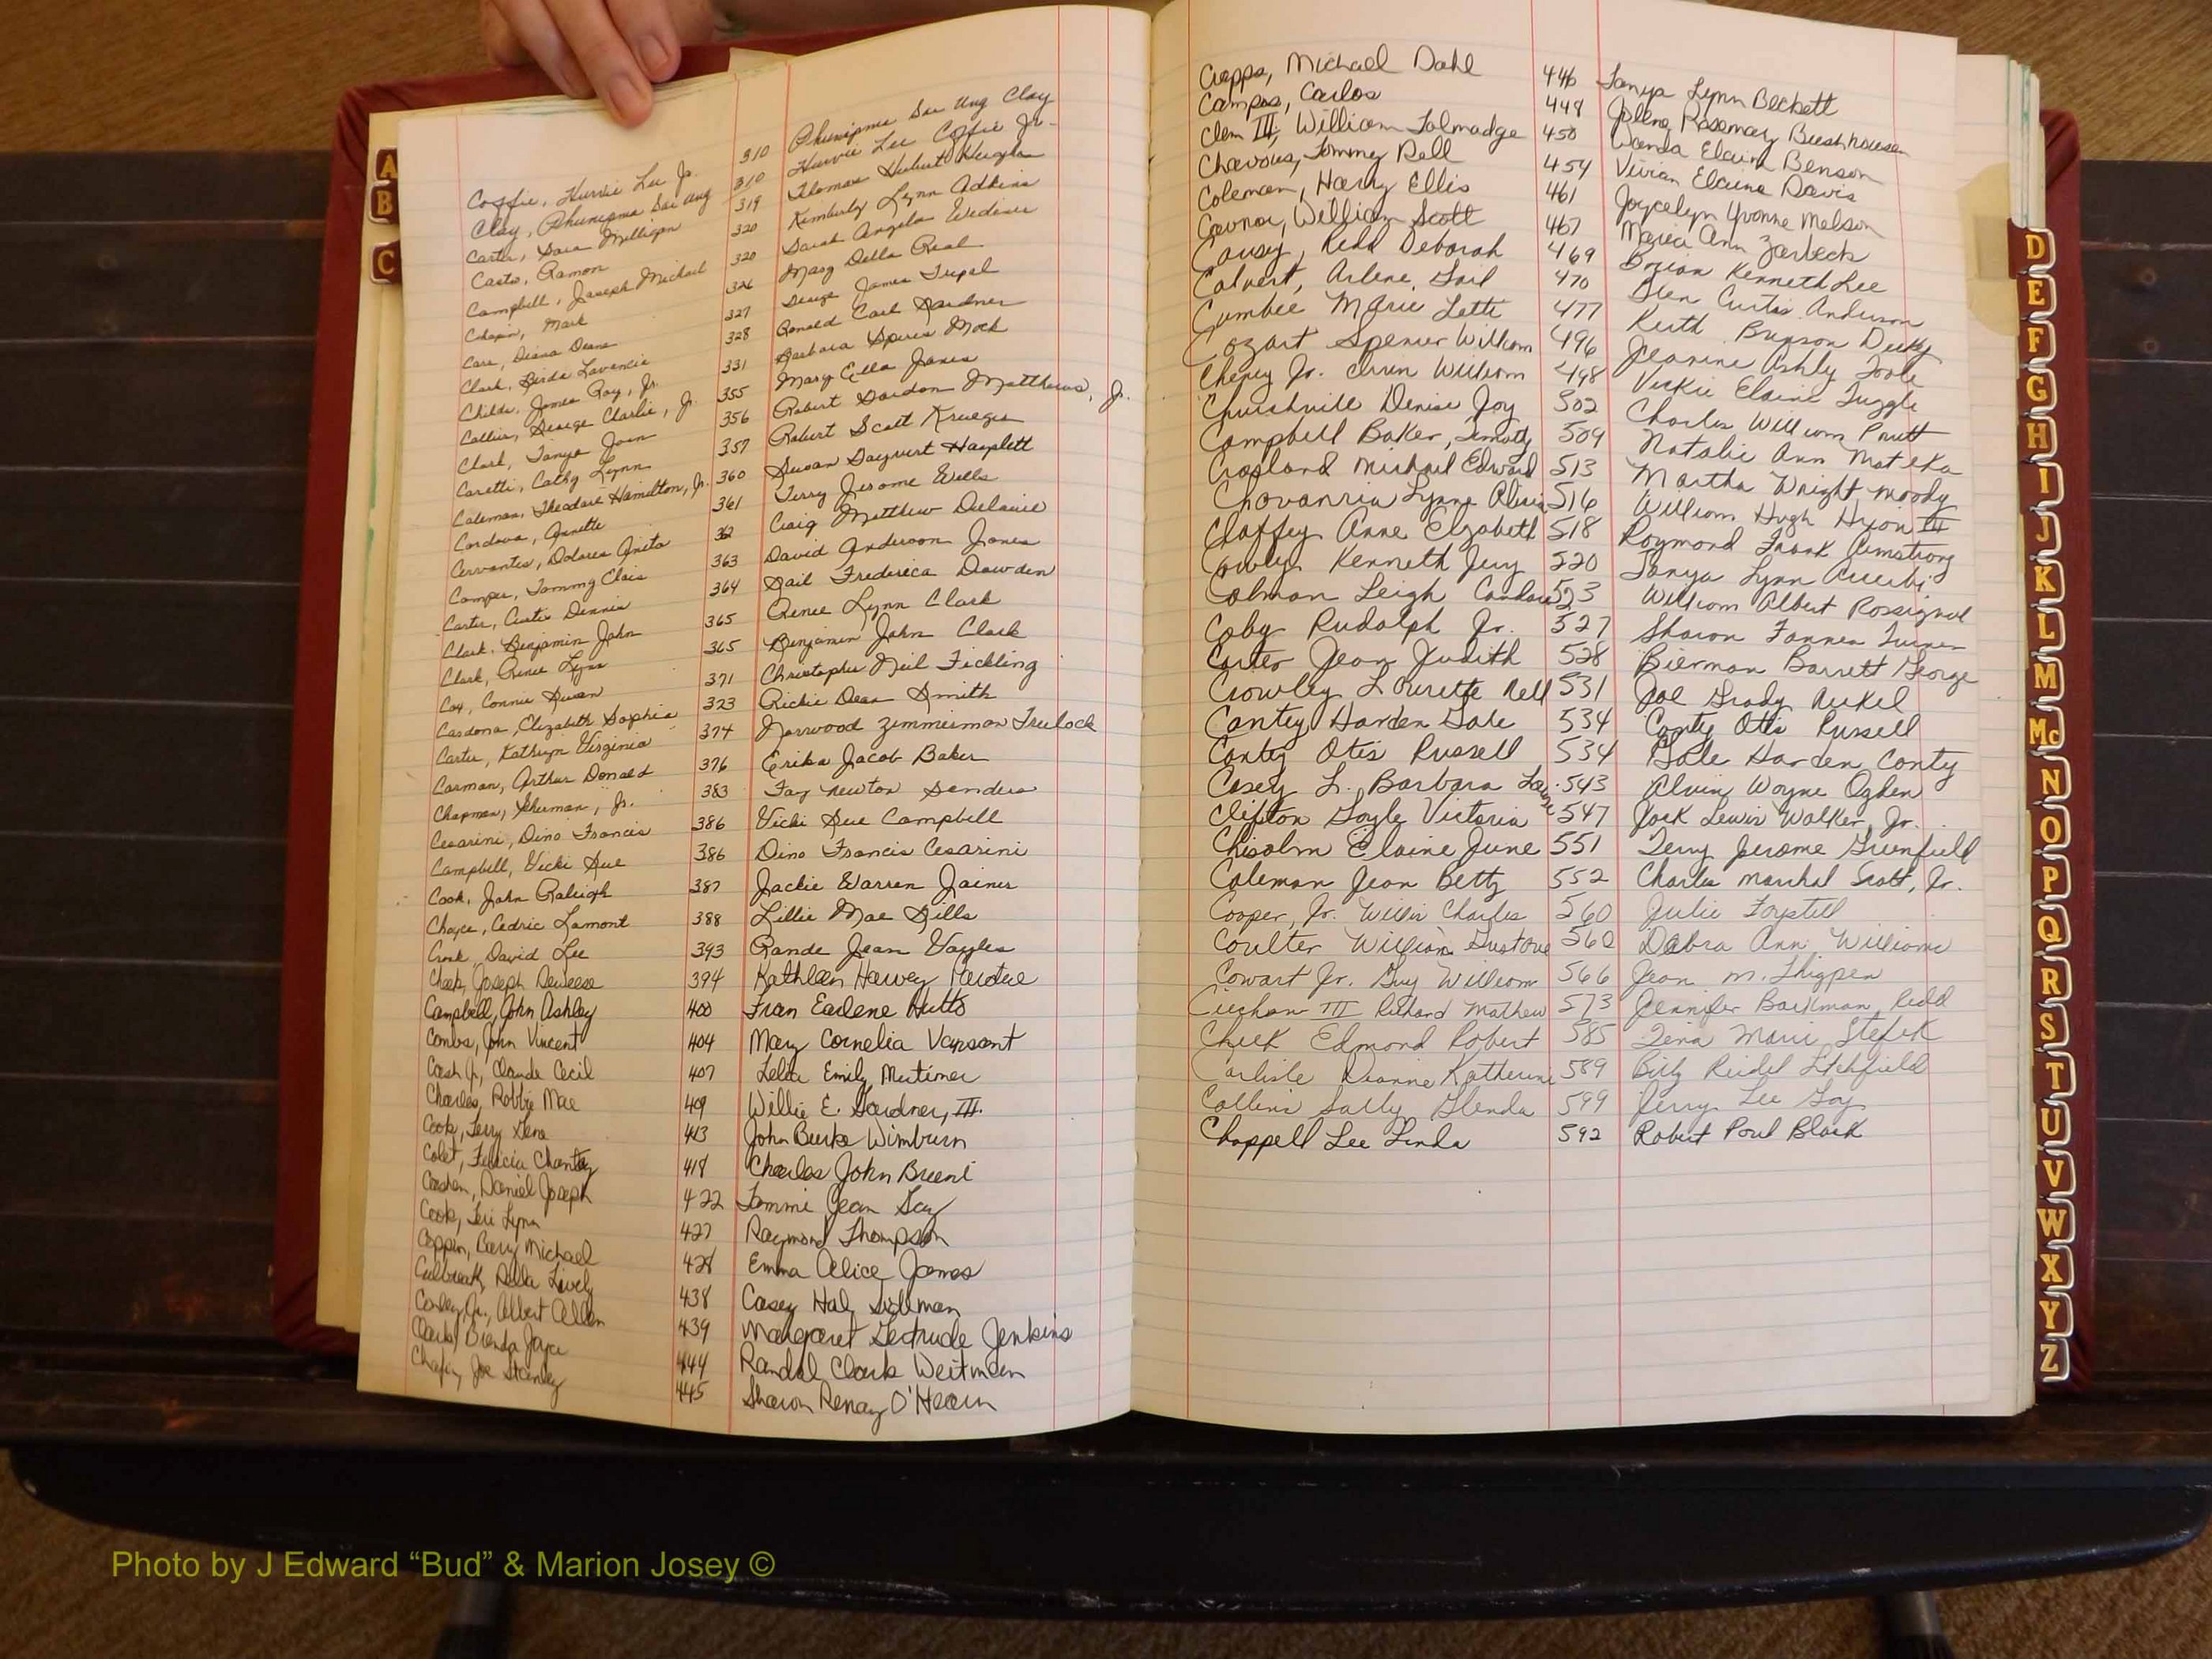 Coffie, Hurvie Lee Jr. 310 Phunipma Sai Ung Clay
Clay, Phunipma Sai Ung 310 Hurvie Lee Coffie Jr.
Carter, Sara Milligan 319 Thomas Hubert Hughes
Casto, Ramon 320 Kimberly Lynn Adkins
Campbell, Joseph Michael 320 Sarah Angela Wediner
Chapin, Mark 326 Mary Della Real
Care, Diana Deane 327 George James Tripal
Clark, Birda Lavencie 328 Ronald Carl Gardner
Childs, James Ray, Jr. 331 Barbara Speris Mock
Collier, George Charlie, Jr. 355 Mary Ella Jones
Clark, Tanya Joan 356 Robert Gordon Matthews, Jr.
Caretti, Cathy Lynn 357 Robert Scott Krueger
Coleman, Theodore Hamilton, Jr. 360 Susan Hamplett
Cordova, Annette 361 Terry Jerome Wells
Cervantes, Dolores Anita 362 Craig Matthew Delaine
Camper, Tommy Clais 363 David Anderson Jones
Carter, Curtis Dennis 364 Gail Frederica Dowden
Clark, Benjamin John 365 Renee Lynn Clark
Clark, Renee Lynn 365 Benjamin John Clark
Cox, Connie Susan 371 Christopher Neil Fickling
Cardona, Elizabeth Sophia 323 Rickie Dean Smith
Carter, Kathryn Virginia 374 Norwood Zimmerman Freelock
Carman, Arthur Donald 376 Erika Jacob Baker
Chapman, Sherman, Jr. 383 Fay Newton Sanders
Cesarini, Dino Francis 386 Vicki Sue Campbell
Campbell, Vicki Sue 386 Dino Francis Cesarini
Cook, John Raleigh 387 Jackie Warren Joiner
Choyce, Cedric Lamont 388 Lillie Mae Sills
Cronk, David Lee 393 Rande Jean Voyles
Cheek, Joseph Deweese 394 Kathleen Harvey Perdue
Campbell, John Ashley 400 Fran Earlene Hutto
Combs, John Vincent 404 Mary Cornelia Vansant
Cash Jr., Claude Cecil 407 Lelia Emily Mertimer
Charles, Robbie Mae 409 Willie E. Gardner, III.
Cook, Terry Gene 413 John Burke Wimburn
Colet, Felicia Chantay 418 Charles John Brent
Cashen, Daniel Joseph 422 Tommi Jean Gay
Cook, Teri Lynn 427 Raymond Thompson
Coppin, Barry Michael 428 Emma Alice James
Culbreath, Della Lively 438 Casey Hal Sidlman
Conley, Jr., Albert Allen 439 Margaret Gertrude Jenkins
Clark, Brenda Joyce 444 Randal Clark Weitman
Chafin, Joe Stanley 445 Sharon Renay O'Hearn
Crapps, Michael Dahl 446 Tanya Lynn Beckett
Campos, Carlos 449 Jolene Rosemary Bushhousen
Clem III, William Talmadge 450 Wanda Elaine Benson
Chavous, Tommy Rell 454 Vivian Elaine Davis
Coleman, Harry Ellis 461 Joycelyn Yvonne Melson
Connor, William Scott 467 Maria Ann Zarbeck
Causey, Redd Deborah 469 Brian Kenneth Lee
Calvert, Arlene, Gail 470 Glen Curtis Anderson
Cumbee Marie Lette 477 Keith Brunson Dukes
Cozart Spenser William 496 Jeanine Ashly Toole
Cheney Jr. Irvin William 498 Vickie Elaine Tuggle
Churchville Denise Joy 502 Charles William Pruitt
Campbell Baker, Timothy 509 Natalie Ann Matyka
Crosland Michael Edward 513 Martha Wright Moody
Chovanria Lynne Alicia 516 William Hugh Hixon III
Claffey Anne Elizabeth 518 Raymond Frank Armstrong
Cowley Kenneth Jerry 520 Tanya Lynn
Colman Leigh Candace 523 William Albert Rossignol
Coby Rudolph Jr. 527 Sharon Fannen Turner
Carter Jean Judith 528 Bierman Barrett George
Crowley Lourette Nell 531 Joe Grady Nickel
Cantey Harden Gale 534 Canty Otis Russell
Canty Otis Russell 534 Gale Harden Canty
Casey L. Barbara 543 Alvin Wayne Ogden
Clifton Gayle Victoria 547 Jack Lewis Walker, Jr.
Chisolm Elaine June 551 Terry Jerome Greenfield
Coleman Jean Betty 552 Charles Marshal Scott, Jr.
Cooper, Jr. Willie Charles 560 Julie Foystill
Coulter William Gustove 560 Debra Ann Williams
Cowart Jr. Guy William 566 Jean M. Thigpen
III Richard Mathew 573 Jennifer Barkman Redd
Cheek Edmond Robert 585 Tena Marie Stefek
Carlisle Dianne Katherine 589 Billy Reidel Litchfield
Collins Sally Glenda 599 Jerry Lee Goy
Chappell Lee Linda 592 Robert Paul Black
A
B
C
D
E
F
G
H
I
J
K
L
M
Mc
N
O
P
Q
R
S
T
U
V
W
X
Y
Z
Photo by J Edward “Bud” & Marion Josey ©